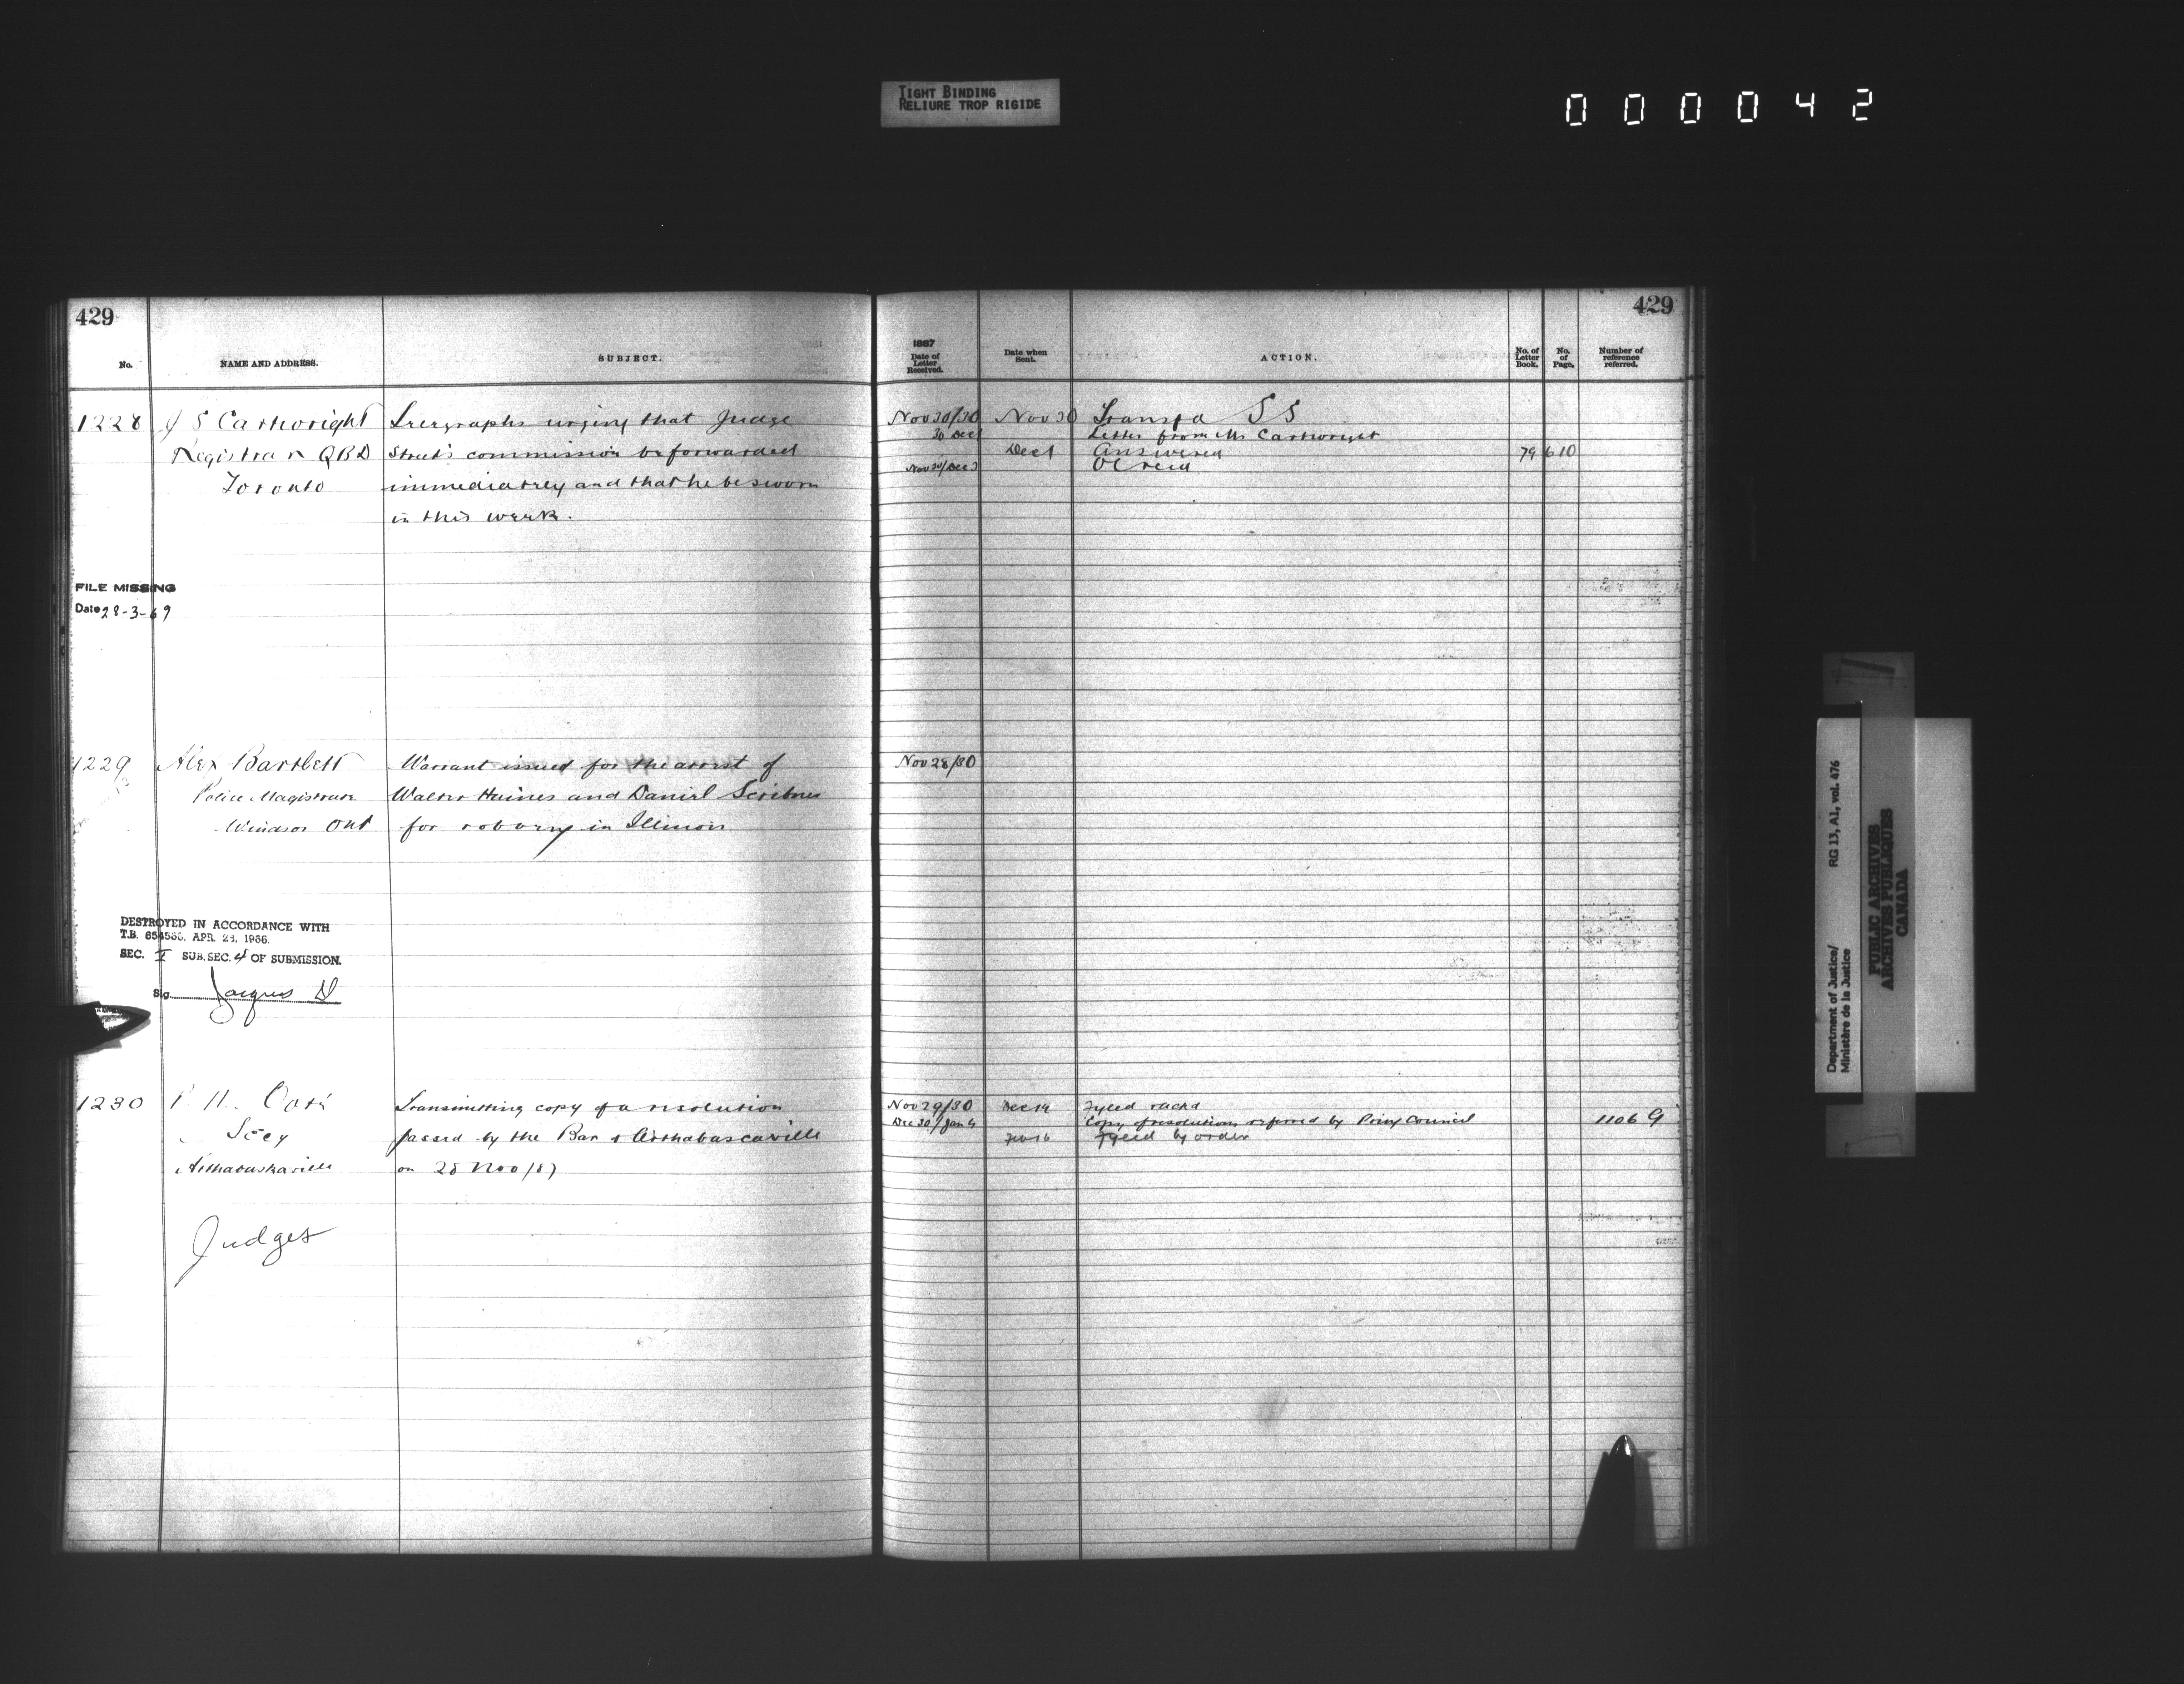 TIGHT BINDING
RELIURE TROP RIGIDE
000042
429
No.
NAME AND ADDRESS.
SUBJECT.
1228
J S Cartwright
Registrar QBD
Toronto
Telegraphs urging that Judge
Street's commission be forwarded
immediately and that he be sworn
in this week.
FILE MISSING
Date 28-3-69
1229
Alex Bartlett
Police Magistrate
Windsor Ont
Warrant issued for the arrest of
Walter Haines and Daniel Scribner
for robbery in Illinois
DESTROYED IN ACCORDANCE WITH
T.B. 654566. APR. 28, 1966.
SEC. I SUB. SEC. 4 OF SUBMISSION.
Sig. Jacques D
1230
Secy
Arthabaskaville
Transmitting copy of a resolution
passed by the Bar of Arthabascaville
on 28 Nov /87
Judges
429
1887
Date of
Letter
Received.
Date when
Sent.
ACTION.
No. of
Letter
Book.
No.
of
Page.
Number of
reference
referred.
Nov 30/30 Nov 30 Transfd S S
30 Dec 1 Letter from Mr Cartwright
Dec 1 Answered 79 610
Nov 30/Dec 3 OC recd
Nov 28/30
Nov 29/30 Dec 14 Fyled
Dec 30/Jan 4 Copy of resolution referred by Privy Council 1106 G
Feb 16 Fyled by order
Department of Justice/
Ministère de la Justice
RG 13, A1, vol. 476
PUBLIC ARCHIVES
ARCHIVES PUBLIQUES
CANADA